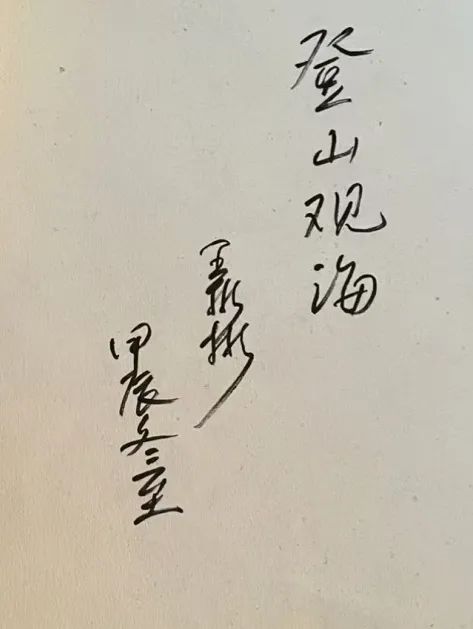 登山观海
王彬彬
甲辰冬至